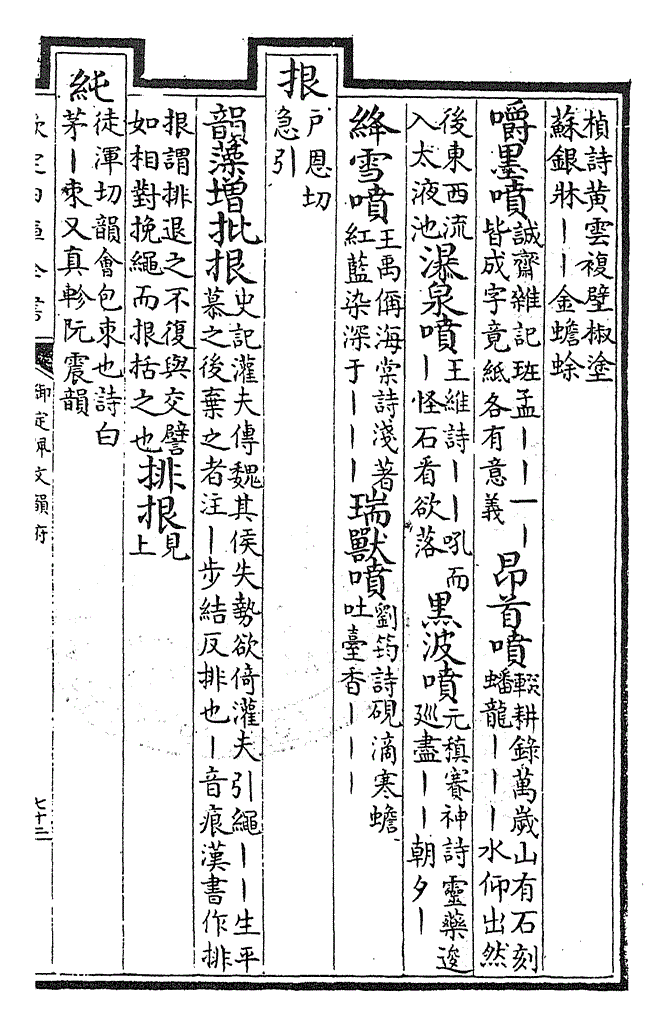 楨詩黃雲複壁椒塗
蘇銀牀丨丨金蟾蜍
嚼墨噴誠齋雜記班孟丨丨一丨
皆成字竟紙各有意義
昂首噴輟耕錄萬歲山有石刻
蟠龍丨丨丨水仰出然
後東西流
入太液池
瀑泉噴王維詩丨丨吼而
丨怪石看欲落
黑波噴元稹賽神詩靈藥逡
巡盡丨丨朝夕丨
絳雪噴王禹偁海棠詩淺著
紅藍染深于丨丨丨
瑞獸噴劉筠詩硯滴寒蟾
吐臺香丨丨丨
拫
戶恩切
急引
韻藻增批拫史記灌夫傳魏其侯失勢欲倚灌夫引繩丨丨生平
慕之後棄之者注丨步結反排也丨音痕漢書作排
拫謂排退之不復與交譬
如相對挽繩而拫括之也
排拫見
上
純
徒渾切韻會包束也詩白
茅丨束又真軫阮震韻
欽定四庫全書
御定佩文韻府
七十二